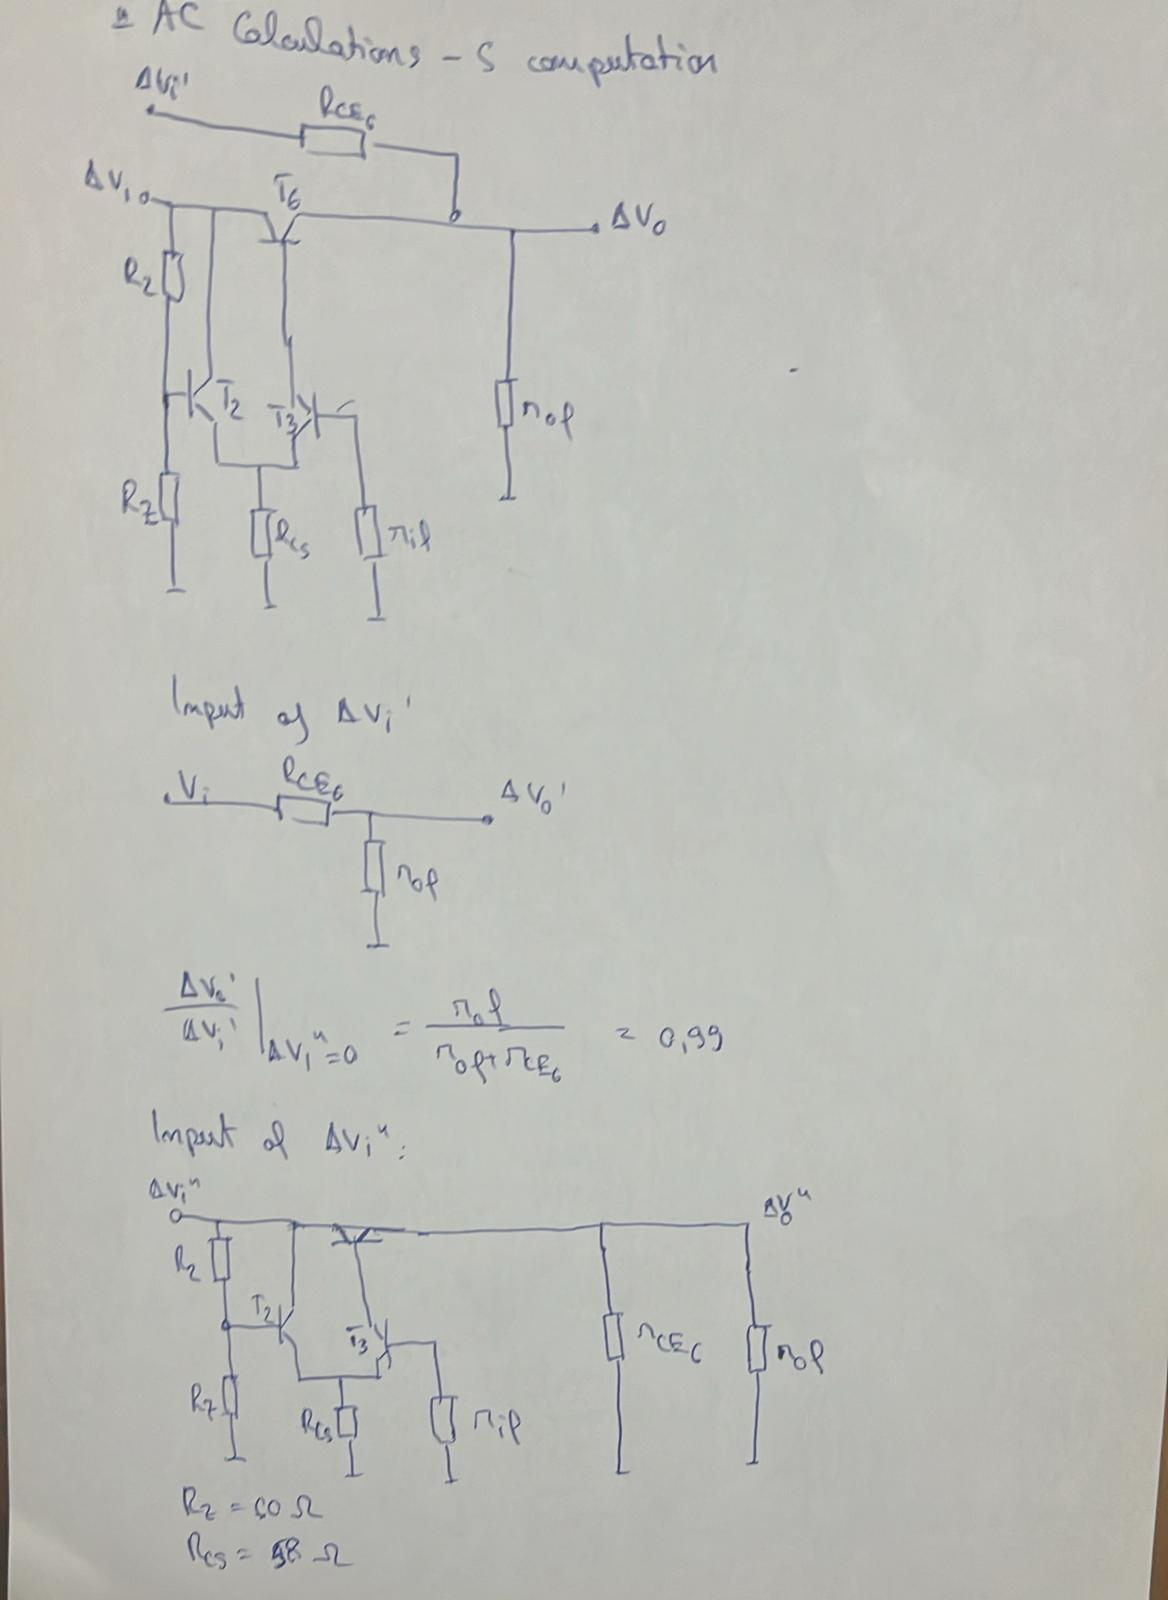 AC Calculations - S computation
ΔVi'
RCE6
ΔVi
T6
ΔVo
R2
T2
T3
rof
RZ
Rcs
rif
Input of ΔVi'
Vi
RCE6
ΔVo'
rof
ΔVo' / ΔVi' | ΔVi"=0 = rof / rof + rCE6 = 0,99
Input of ΔVi":
ΔVi"
ΔVo"
R2
T2
T3
rCE6
rof
RZ
Rcs
rif
RZ = Ω
Rcs = Ω